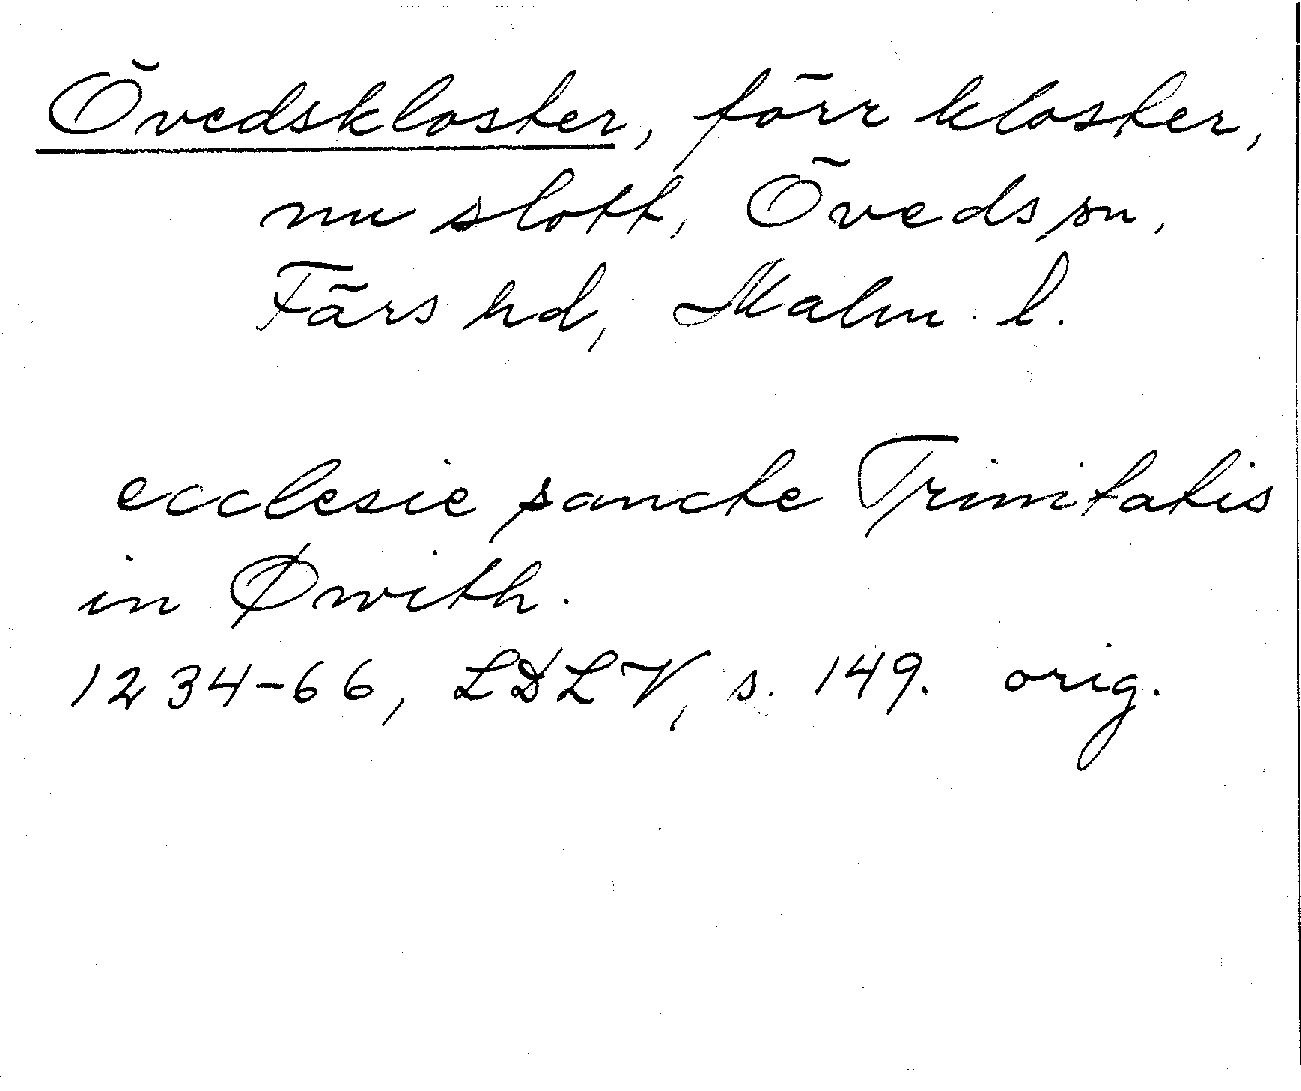 Övedskloster, förr kloster,
nu slott, Öveds sn,
Färs hd, Malm. l.
ecclesie sancte Trinitatis
in Øwith.
1234-66, LDLV, s. 149. orig.